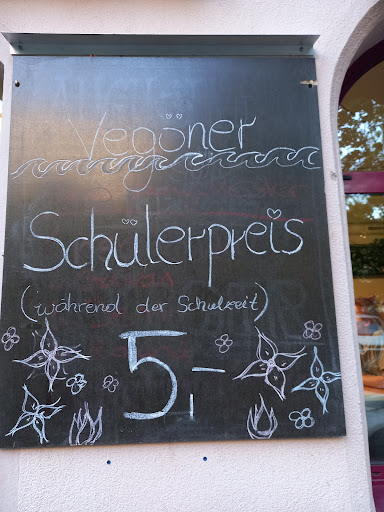 Vegöner
Schülerpreis
(während der Schulzeit)
5,-